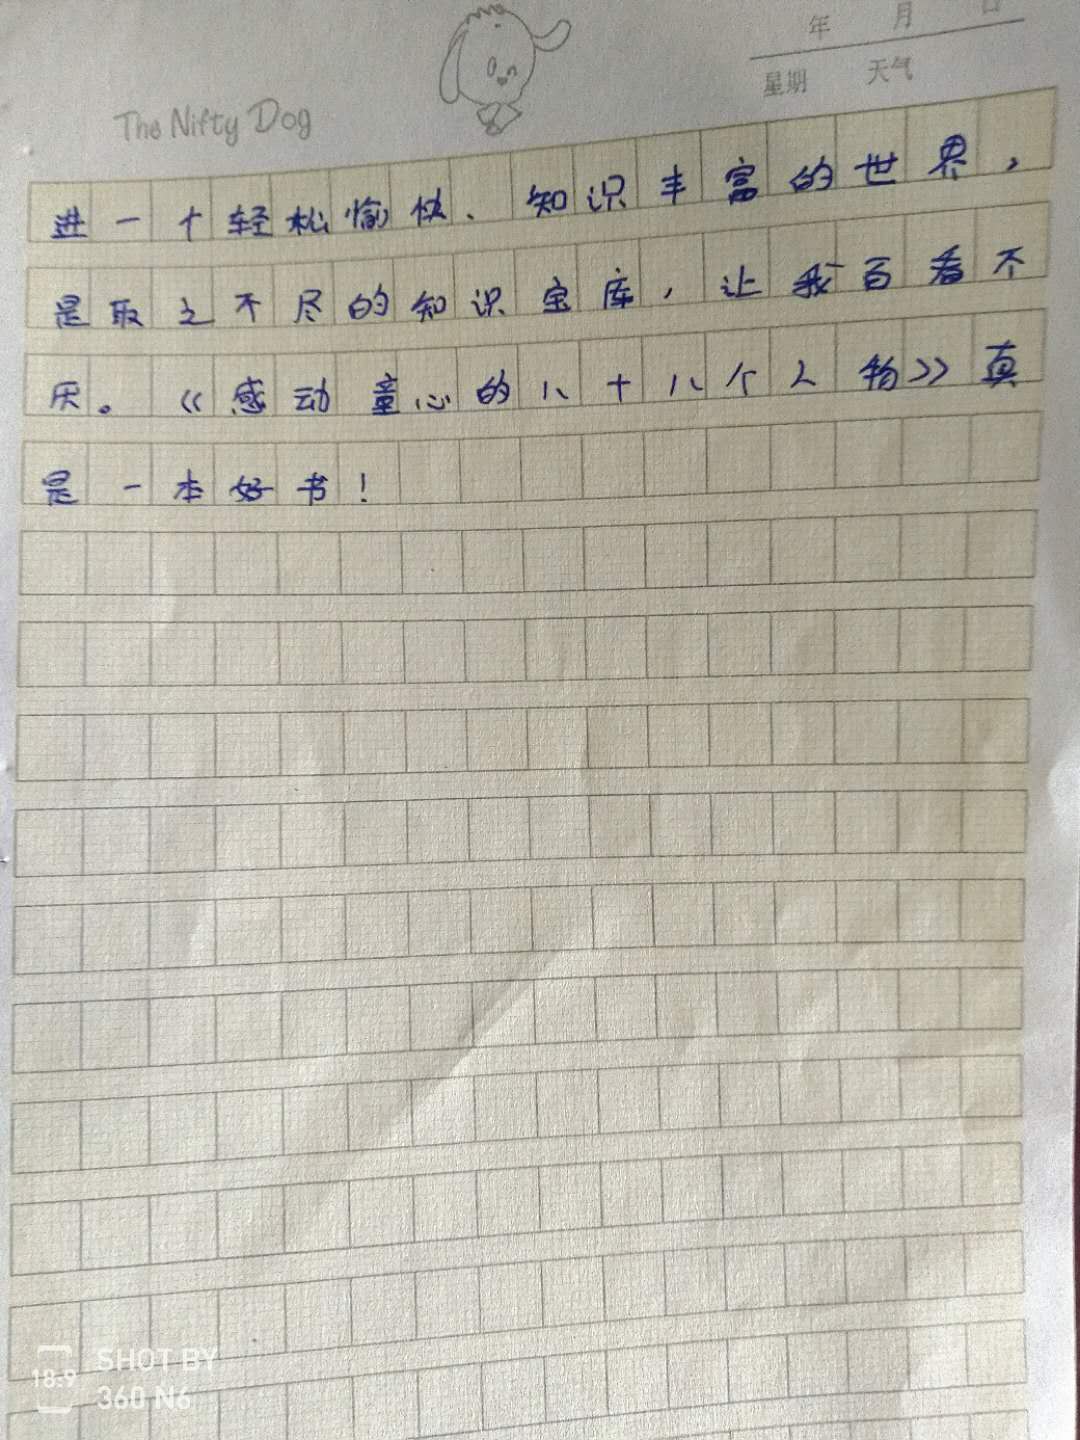 年 月 日
星期 天气
The Nifty Dog
进一个轻松愉快、知识丰富的世界，
是取之不尽的知识宝库，让我百看不
厌。《感动童心的八十八个人物》真
是一本好书！
SHOT BY
18:9
360 N6